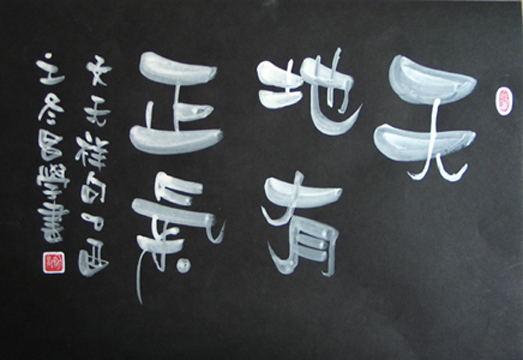 天
地有
正氣
文天祥句丁酉
冬